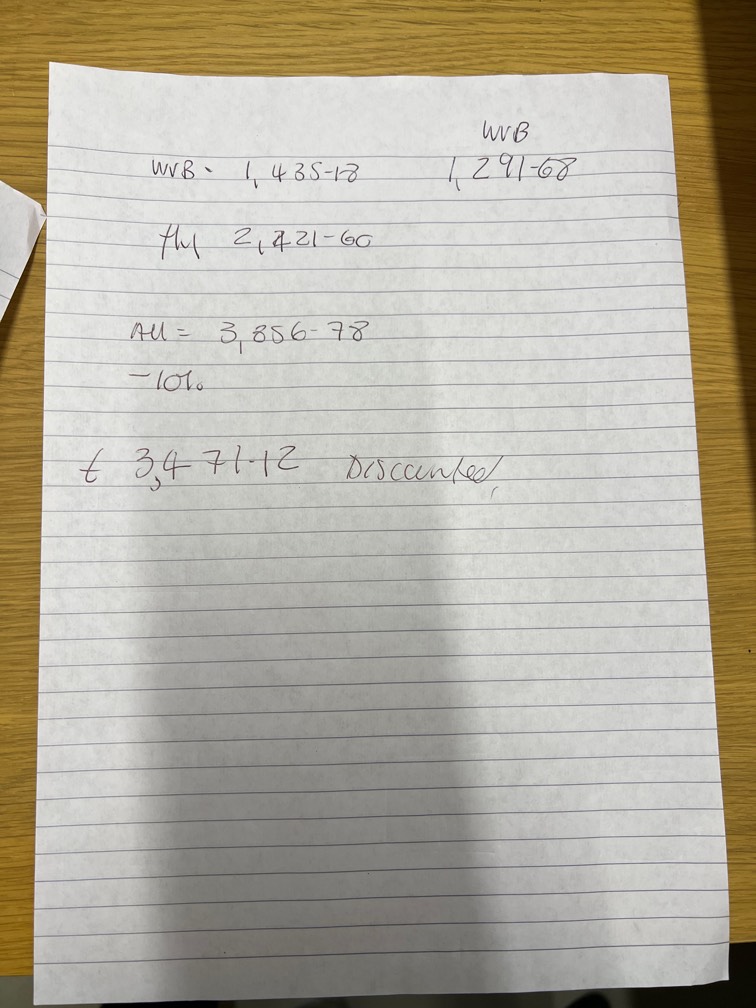 WVB
WVB. 1,435-18 1,291-68
2,421-60
All = 3,856-78
-10%
£ 3,471-12 Discounted,